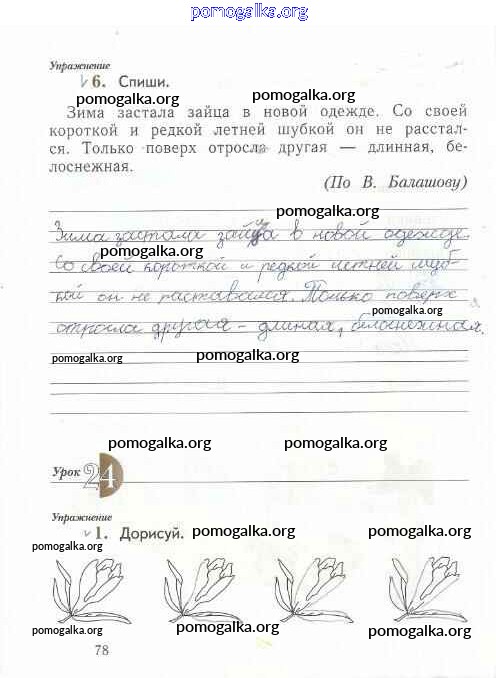 pomogalka.org
Упражнение
6. Спиши.
pomogalka.org
pomogalka.org
Зима застала зайца в новой одежде. Со своей
короткой и редкой летней шубкой он не расстал-
ся. Только поверх отросла другая — длинная, бе-
лоснежная.
pomogalka.org
pomogalka.org
(По В. Балашову)
pomogalka.org
Зима застала зайца в новой одежде.
pomogalka.org
Со своей короткой и редкой летней шуб-
кой он не раставался. Только поверх
pomogalka.org
отросла другая - длиная, белоснежная.
pomogalka.org
pomogalka.org
pomogalka.org
pomogalka.org
Урок 24
pomogalka.org
Упражнение
1. Дорисуй.
pomogalka.org
pomogalka.org
pomogalka.org
pomogalka.org
pomogalka.org
pomogalka.org
pomogalka.org
78